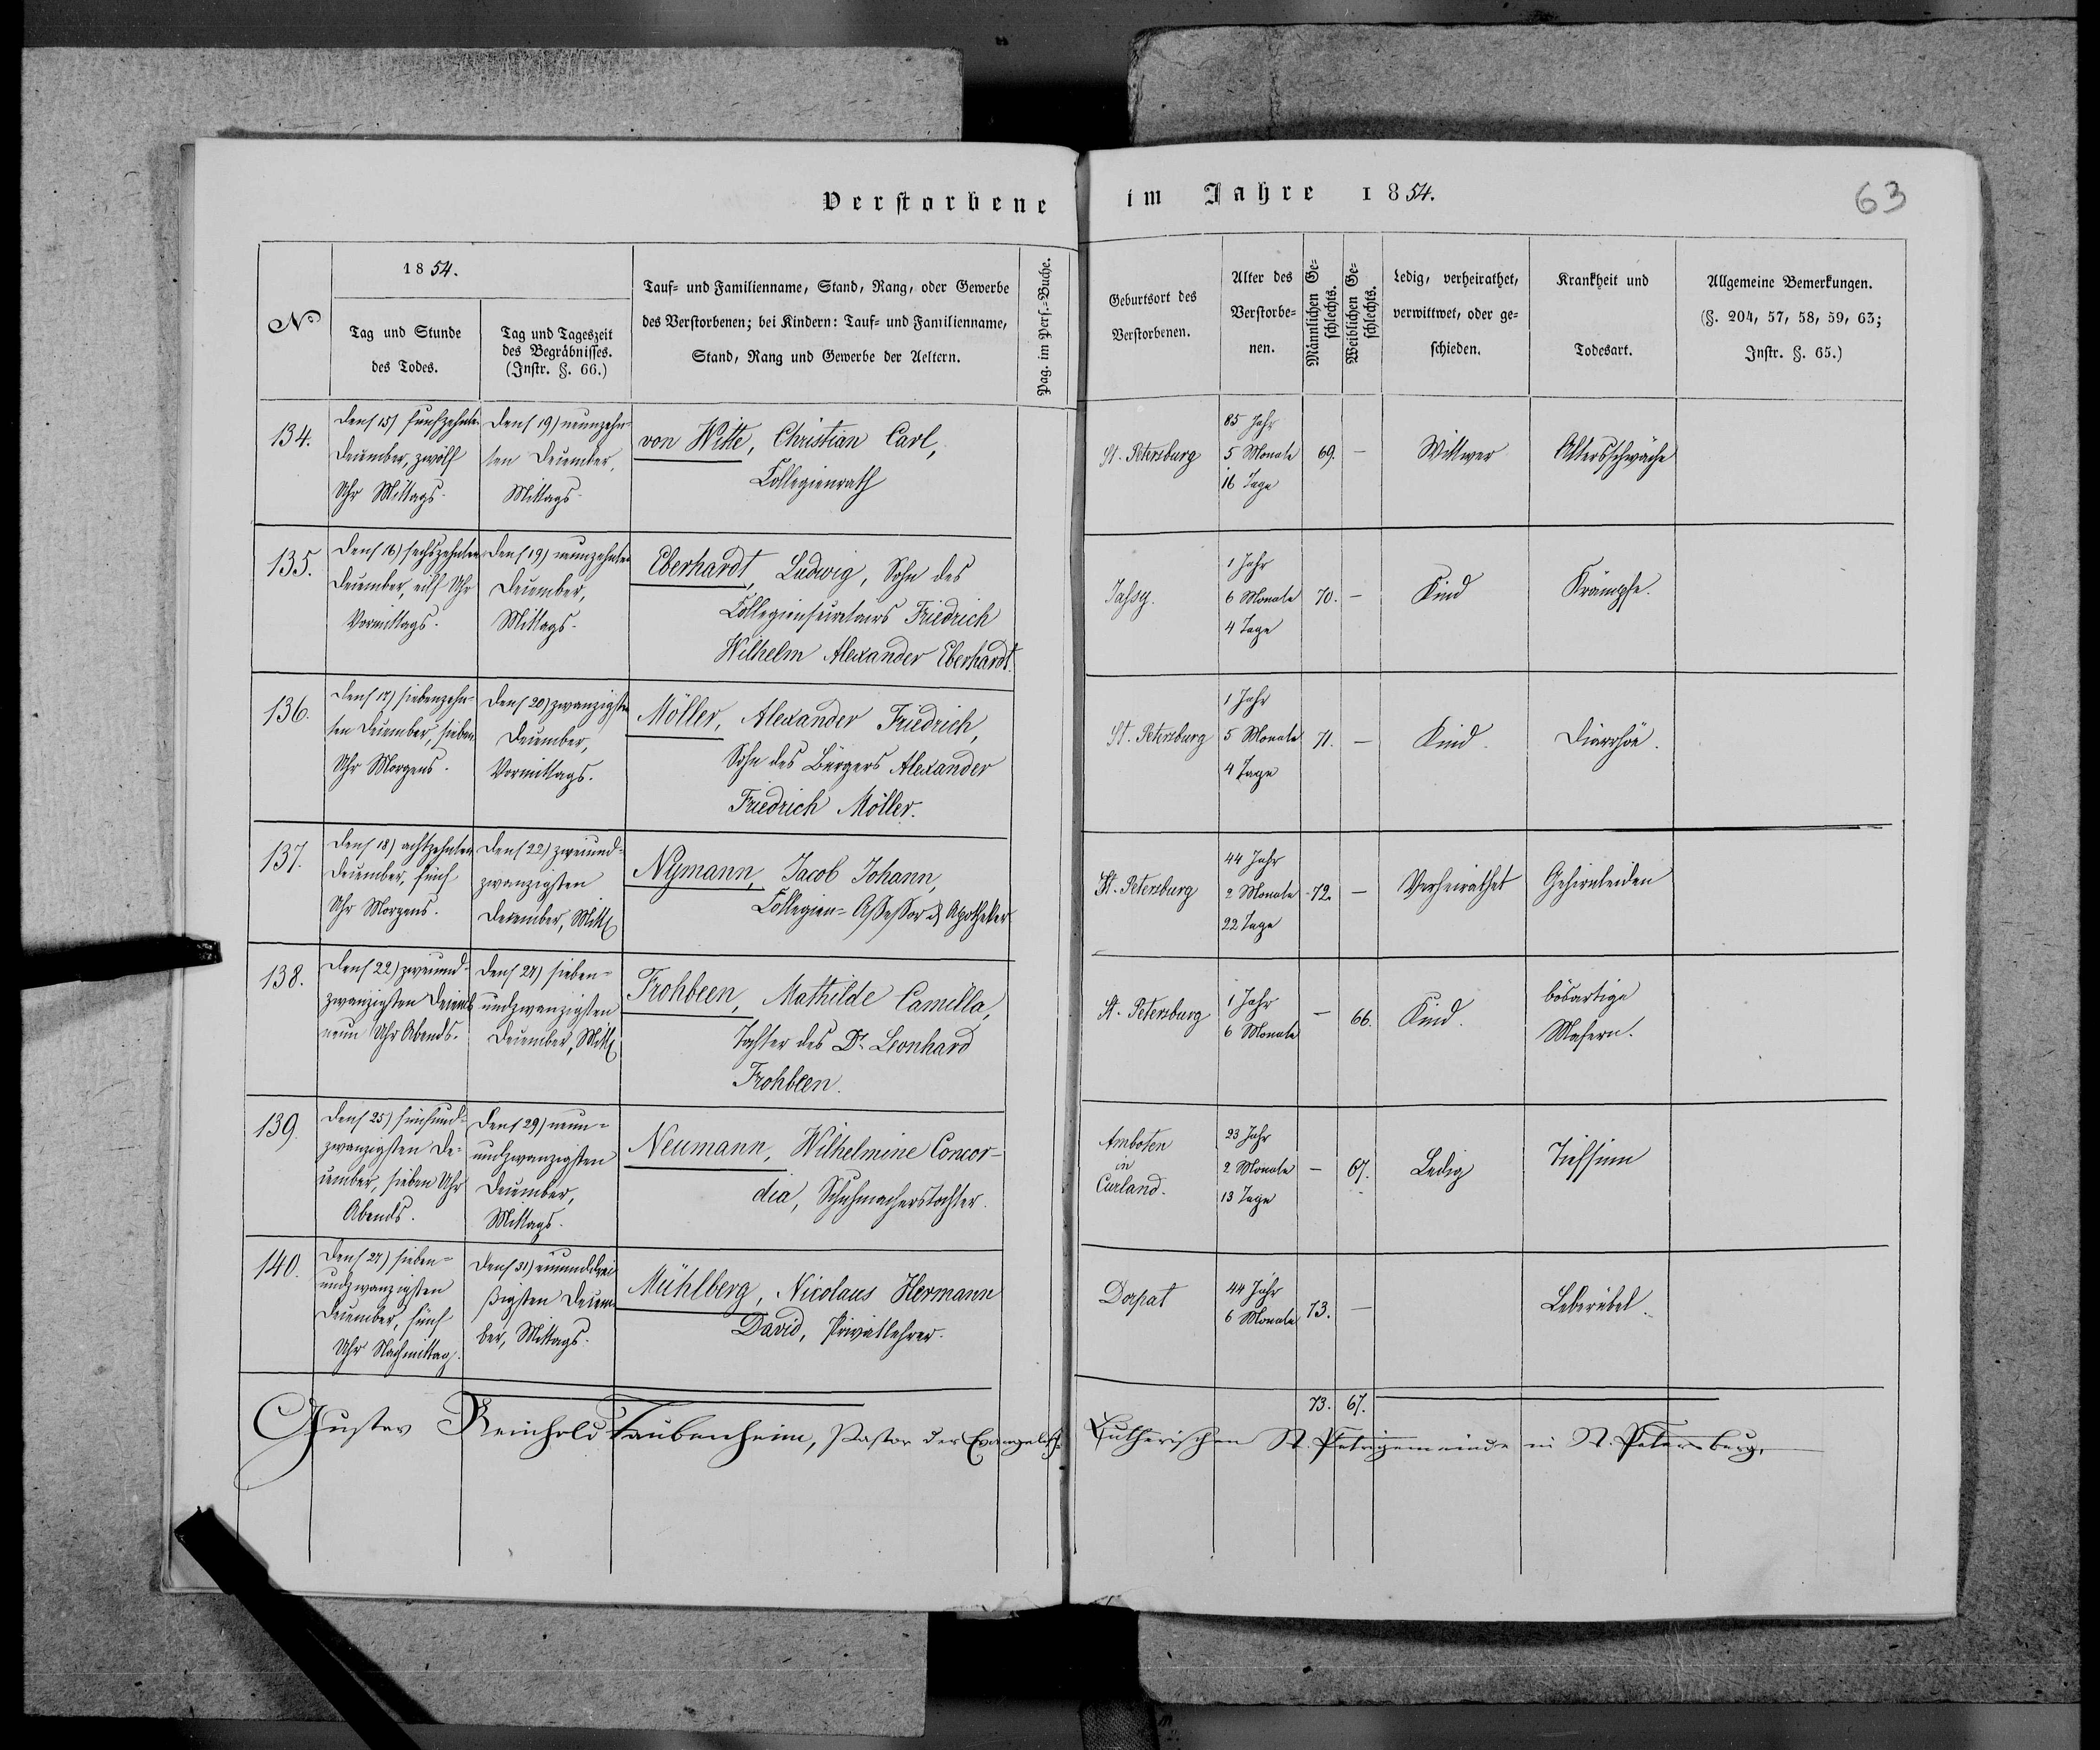 Verstorbene im Jahre 1854.
63
No
1854.
Tag und Stunde
des Todes.
Tag und Tageszeit
des Begräbnisses.
(Instr. §. 66.)
Tauf= und Familienname, Stand, Rang, oder Gewerbe
des Verstorbenen; bei Kindern: Tauf= und Familienname,
Stand, Rang und Gewerbe der Aeltern.
Pag. im Pers.=Buche.
Geburtsort des
Verstorbenen.
Alter des
Verstorbe=
nen.
Männlichen Ge=
schlechts.
Weiblichen Ge=
schlechts.
Ledig, verheirathet,
verwittwet, oder ge=
schieden.
Krankheit und
Todesart.
Allgemeine Bemerkungen.
(§. 204, 57, 58, 59, 63;
Instr. §. 65.)
134.
den (15) fünfzehnten
December, zwölf
Uhr Mittags.
den (19) neunzehn=
ten December,
Mittags.
von Witte, Christian Carl,
Collegienrath
St. Petersburg
85 Jahr
5 Monate
16 Tage
69. —
Wittwer
Altersschwäche
135.
den (16) sechszehnten
December, eilf Uhr
Vormittags.
den (19) neunzehnten
December,
Mittags.
Eberhardt, Ludwig, Sohn des
Collegiensecretairs Friedrich
Wilhelm Alexander Eberhardt.
Jassy.
1 Jahr
6 Monate
4 Tage
70. —
Kind
Krämpfe.
136.
den (17) siebenzehn=
ten December, sieben
Uhr Morgens.
den (20) zwanzigsten
December,
Vormittags.
Möller, Alexander Friedrich,
Sohn des Bürgers Alexander
Friedrich Möller.
St. Petersburg
1 Jahr
5 Monate
4 Tage
71. —
Kind.
Diarrhöe.
137.
den (18) achtzehnten
December, fünf
Uhr Morgens.
den (22) zweiund=
zwanzigsten
December, Mitt
Nymann, Jacob Johann,
Collegien=Assessor & Apotheker
St. Petersburg
44 Jahr
2 Monate
22 Tage
72. —
Verheirathet
Gehirnleiden
138.
den (22) zweiund=
zwanzigsten Decemb
neun Uhr Abends.
den (27) sieben=
undzwanzigsten
December, Mitt
Frohbeen, Mathilde Camilla,
Tochter des Dr. Leonhard
Frohbeen.
St. Petersburg
1 Jahr
6 Monate
— 66.
Kind.
bösartige
Masern.
139.
den (25) fünfund=
zwanzigsten De=
cember, sieben Uhr
Abends.
den (29) neun=
undzwanzigsten
December,
Mittags.
Neumann, Wilhelmine Concor=
dia, Schuhmacherstochter.
Amboten
in
Curland.
23 Jahr
2 Monate
13 Tage
— 67.
Ledig
Tiefsinn
140.
den (27) sieben=
undzwanzigsten
December, fünf
Uhr Nachmittag.
den (31) einunddrei
ßigsten Decem
ber, Mittags.
Mühlberg, Nicolaus Hermann
David, Privatlehrer.
Dorpat
44 Jahr
6 Monate
73. —
Leberübel.
73. 67.
Gustav Reinhold Taubenheim, Pastor der Evangelisch Lutherischen St. Petrigemeinde in St. Petersburg.